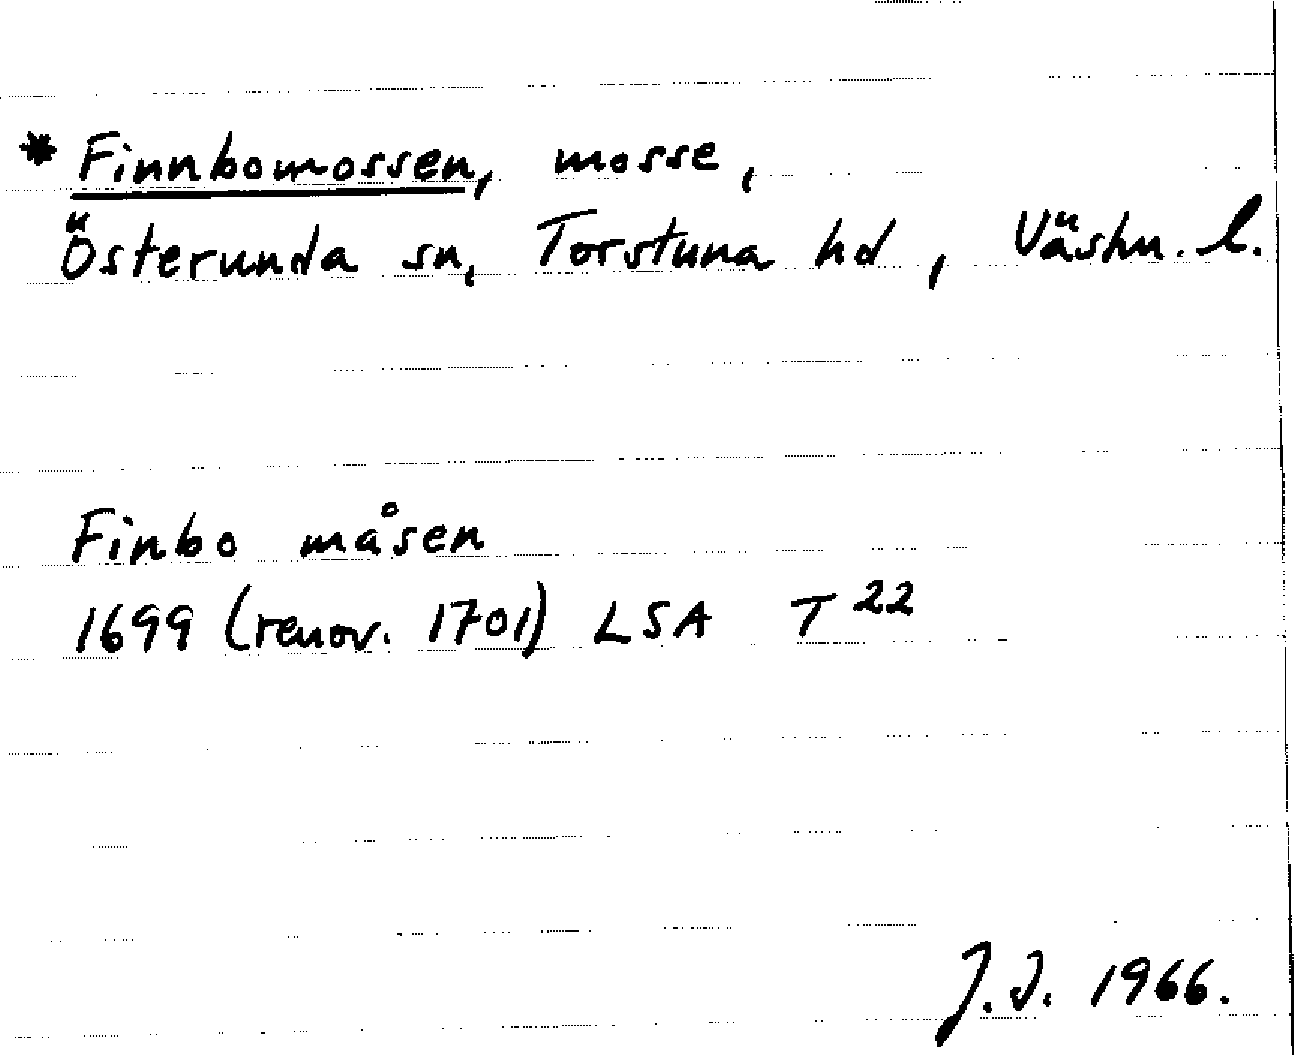 * Finnbomossen, mosse,
Österunda sn, Torstuna hd, Västm. l.
Finbo måsen
1699 (renov. 1701) LSA T 22
J.I. 1966.